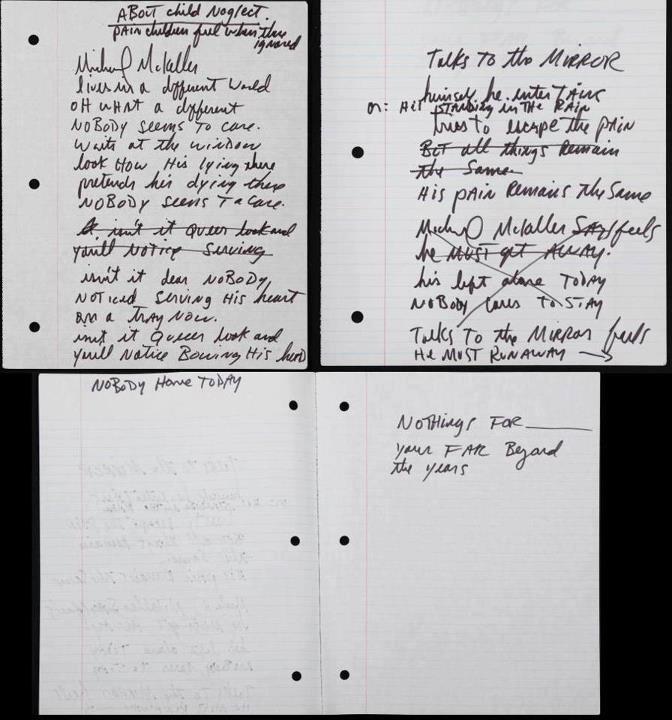 ABOUT child Neglect.
PAIN children feel when they
ignored
Michael McKeller
lives in a different World
OH WHAT a different
NOBODY SEEMS TO CARE.
Waits at the window
look How His lying there
pretends his dying there
NOBODY SEEMS To Care.
isn't it Queer look and
you'll Notice Serving
isn't it dear NOBODY
NOTICED SERVING HIS heart
ON a TRAY NOW.
isnt it Queer look and
you'll Notice Bowing His head
Talks To the MIRROR
himself he enterTAINS
OR: HiS STANDING IN THE RAIN
tries to escape the PAIN
BUT all things Remain
the Same.
HiS pAiN Remains the Same
Michael McKeller SAY feels
he MUST get AWAY.
his left alone TODAY
NOBODY Cares TO STAY
Talks To the MIRROR feels
He MUST RUNAWAY
NOBODY Home TODAY
NOTHings FOR
your FAR Beyond
the years